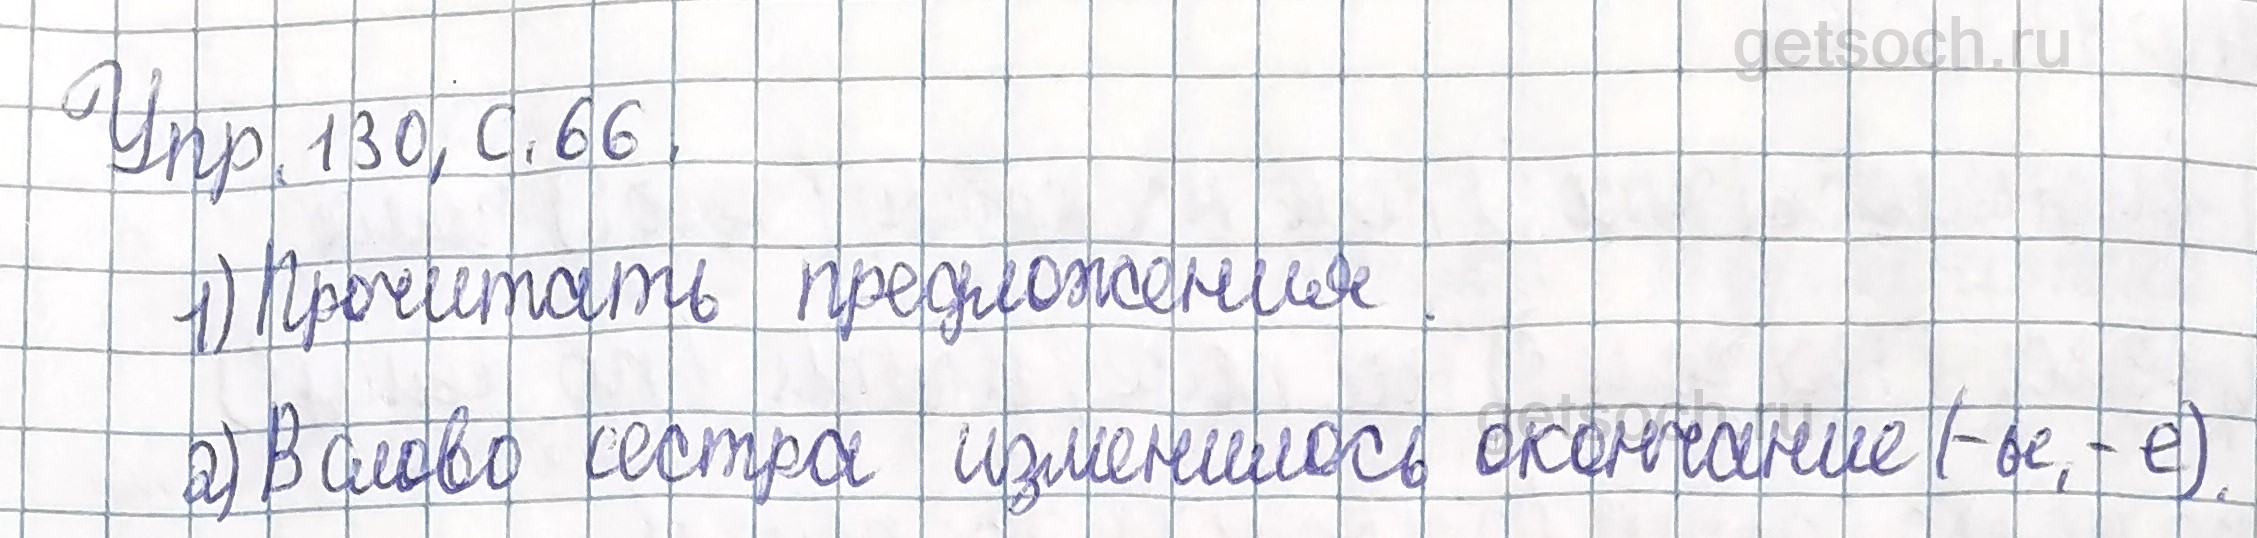 getsoch.ru
Упр. 130, с. 66.
1) Прочитать предложения.
getsoch.ru
2) В слово сестра изменилось окончание (-ы, -е).